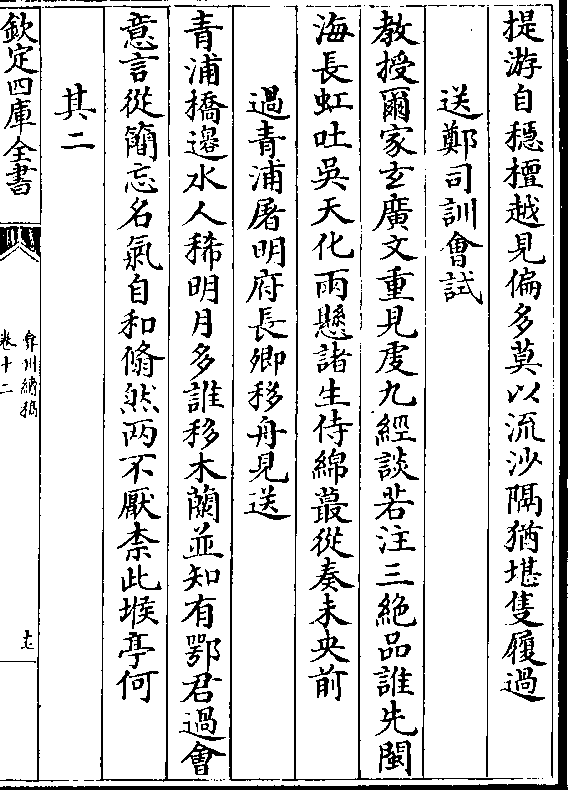 提游自穩檀越見偏多莫以流沙隔猶堪隻履過
送鄭司訓會試
教授爾家玄廣文重見虔九經談若注三絶品誰先閩
海長虹吐吳天化雨懸諸生侍綿蕞從奏未央前
過青浦屠明府長卿移舟見送
青浦橋邊水人稀明月多誰移木蘭並知有鄂君過會
意言從簡忘名氣自和翛然两不厭柰此堠亭何
其二
欽定四庫全書
弇州續稿
卷十二